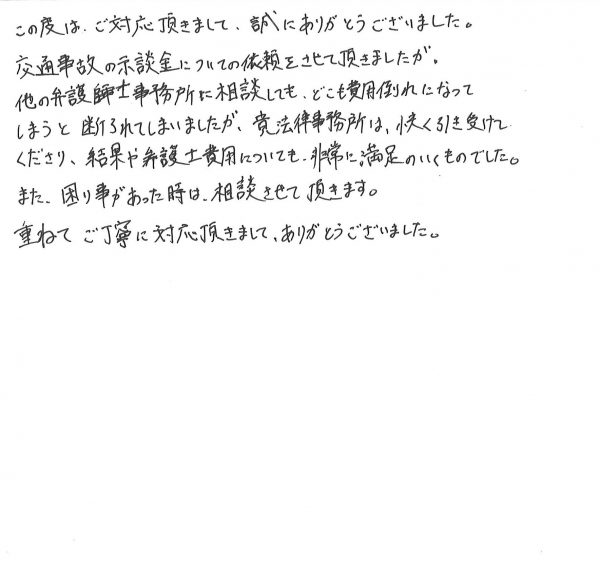 この度は、ご対応頂きまして、誠にありがとうございました。
交通事故の示談金についての依頼をさせて頂きましたが、
他の弁護師士事務所に相談しても、どこも費用倒れになって
しまうと断られてしまいましたが、寛法律事務所は、快く引き受けて
くださり、結果や弁護士費用についても、非常に満足のいくものでした。
また、困り事があった時は、相談させて頂きます。
重ねてご丁寧に対応頂きまして、ありがとうございました。